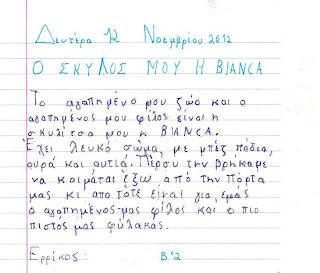 Δευτέρα 12 Νοεμβρίου 2012
Ο ΣΚΥΛΟΣ ΜΟΥ Η BIANCA
Το αγαπημένο μου ζώο και ο
αγαπημένος μου φίλος είναι η
σκυλίτσα μου η BIANCA.
Έχει λευκό σώμα, με μπεζ πόδια,
ουρά και αυτιά. Πέρσυ την βρήκαμε
να κοιμάται έξω από την πόρτα
μας κι από τότε είναι για εμάς
ο αγαπημένος μας φίλος και ο πιο
πιστός μας φύλακας.
Ερρίκος: Β'2